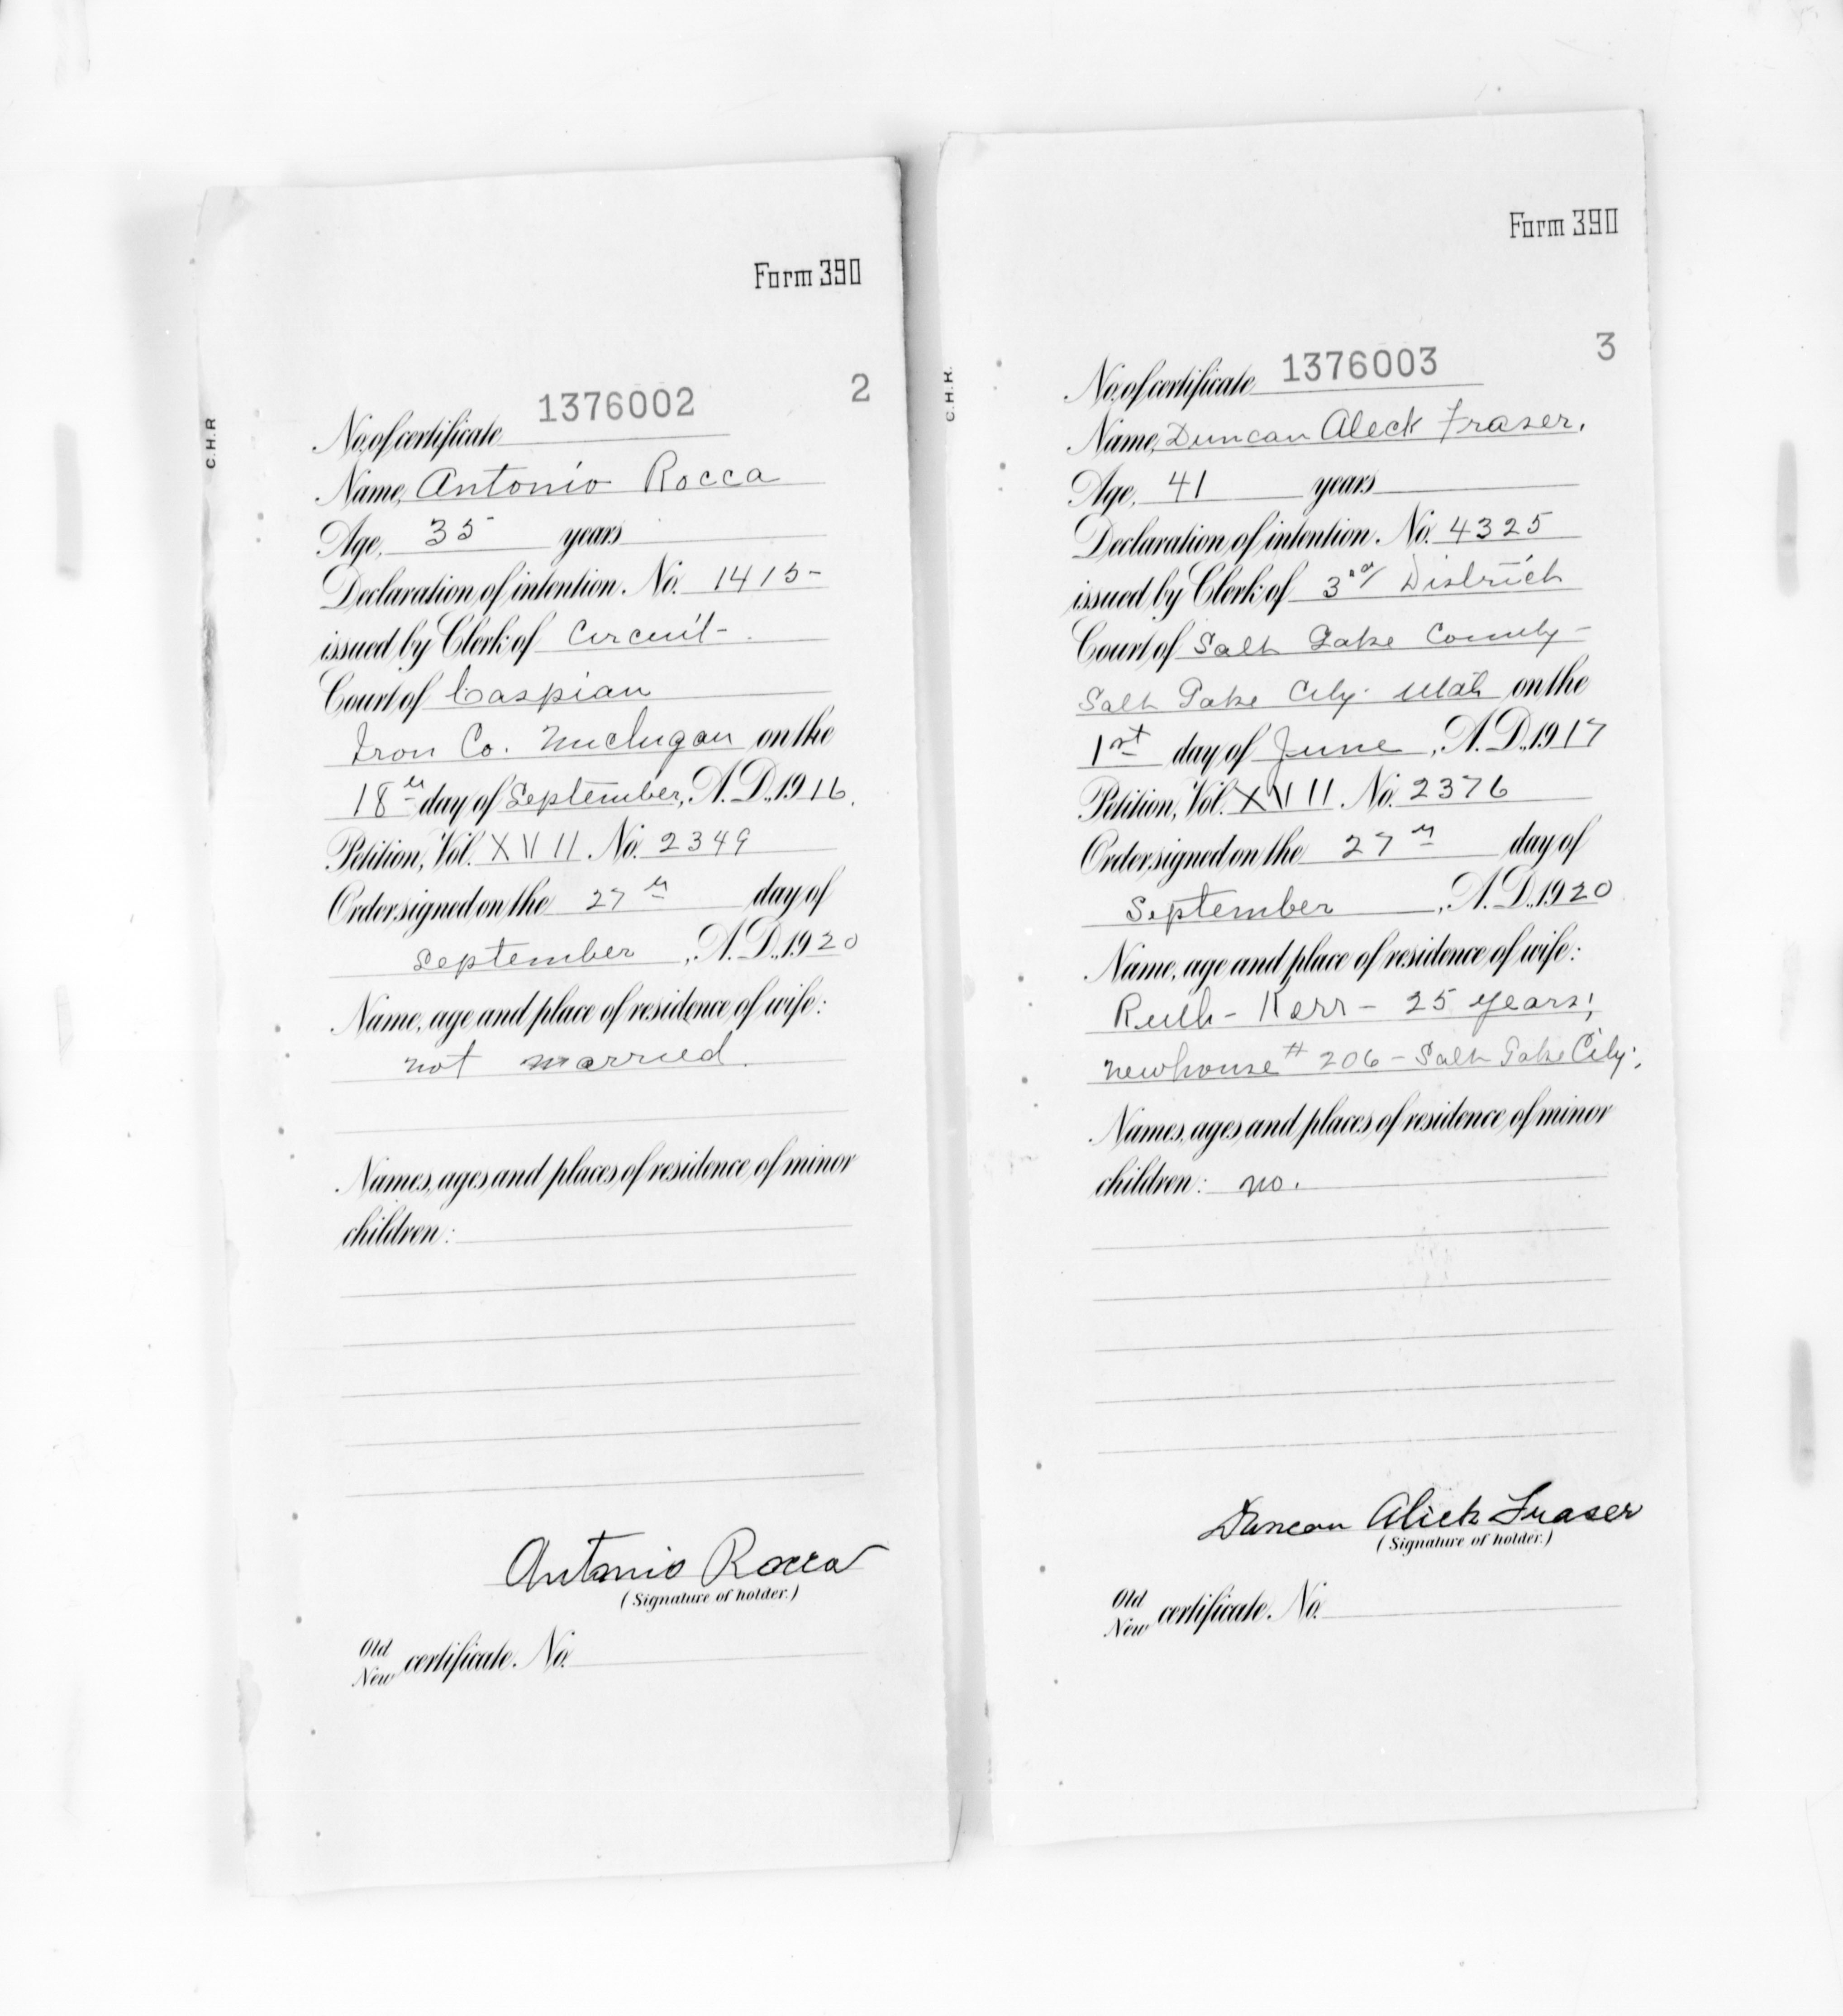 Form 390
C.H.R
2
No. of certificate 1376002
Name, Antonio Rocca
Age, 35 years
Declaration of intention, No. 1415
issued by Clerk of Circuit
Court of Caspian
Iron Co. Michigan on the
18th day of September, A.D., 1916.
Petition, Vol. XVII. No. 2349
Order signed on the 27th day of
September, A.D., 1920
Name, age and place of residence of wife:
not married.
Names, ages and places of residence of minor
children:
Antonio Rocca
(Signature of holder.)
Old
New certificate, No.
Form 390
C.H.R.
3
No. of certificate 1376003
Name, Duncan Aleck Fraser.
Age, 41 years
Declaration of intention, No. 4325
issued by Clerk of 3rd District
Court of Salt Lake County
Salt Lake City. Utah on the
1st day of June, A.D., 1917
Petition, Vol. XVII. No. 2376
Order signed on the 27th day of
September, A.D., 1920
Name, age and place of residence of wife:
Ruth - Kerr - 25 years;
Newhouse # 206 - Salt Lake City.
Names, ages and places of residence of minor
children: no.
Duncan Alick Fraser
(Signature of holder.)
Old
New certificate, No.